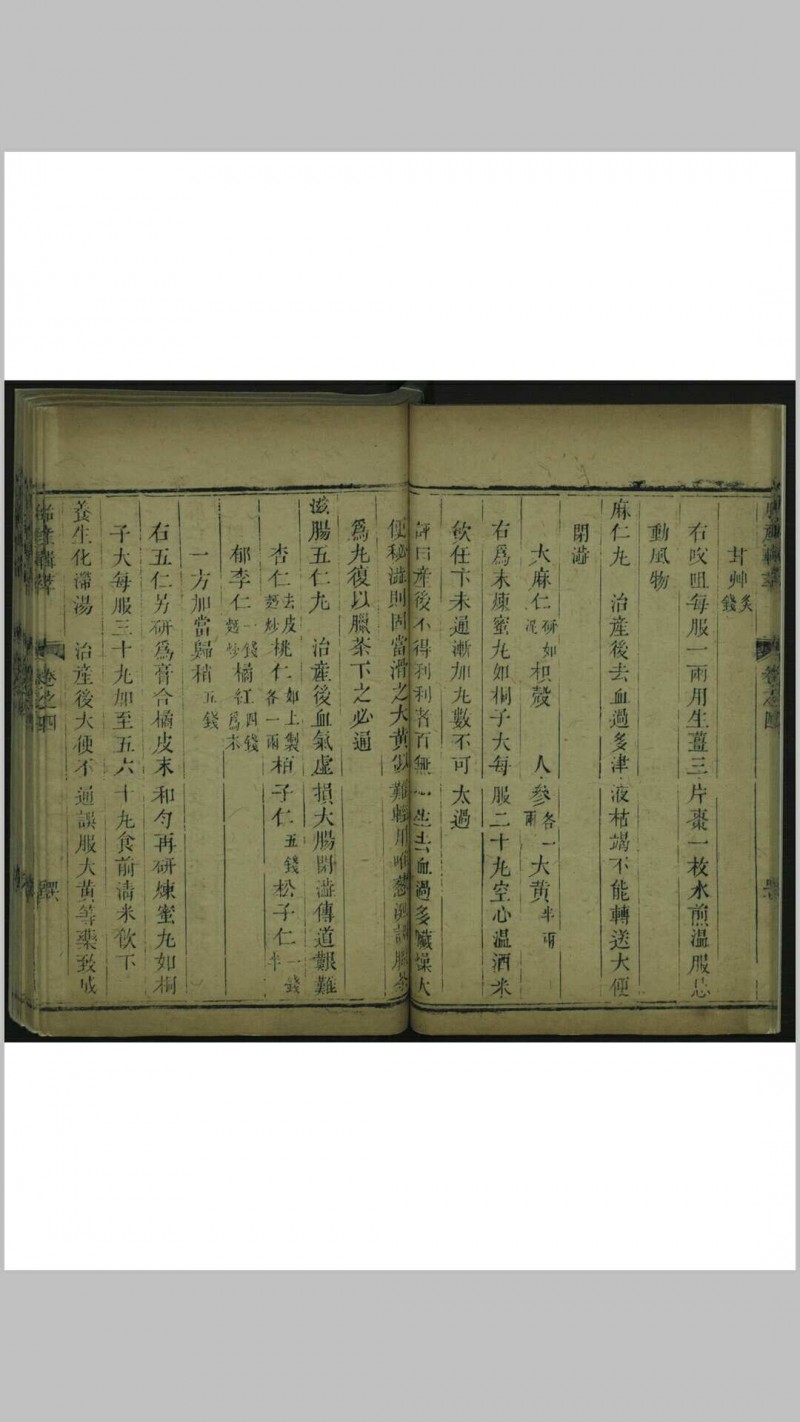 甘艸炙錢
右㕮咀每服一兩用生薑三片棗一枚水煎溫服忌
動風物
麻仁九 治產後去血過多津液枯竭不能轉送大便
閉澁
大麻仁研如泥枳殼 人參各一兩大黃半兩
右爲末煉蜜九如桐子大每服二十九空心溫酒米
飲任下未通漸加九數不可太過
評曰產後不得利利者百無一生去血過多臟燥大
便秘澁則固當滑之大黃似難輕用唯葱涎調臘茶
爲九復以臘茶下之必通
滋腸五仁九 治產後血氣虛損大腸閉澁傳道艱難
杏仁去皮麩炒桃仁如上製各一兩柏子仁五錢松子仁一錢半
郁李仁一錢麩炒橘紅四錢爲末
一方加當歸稍五錢
右五仁另研爲膏合橘皮末和勻再研煉蜜九如桐
子大每服三十九加至五六十九食前清米飲下
養生化滯湯 治產後大便不通誤服大黃等藥致成
卷之四